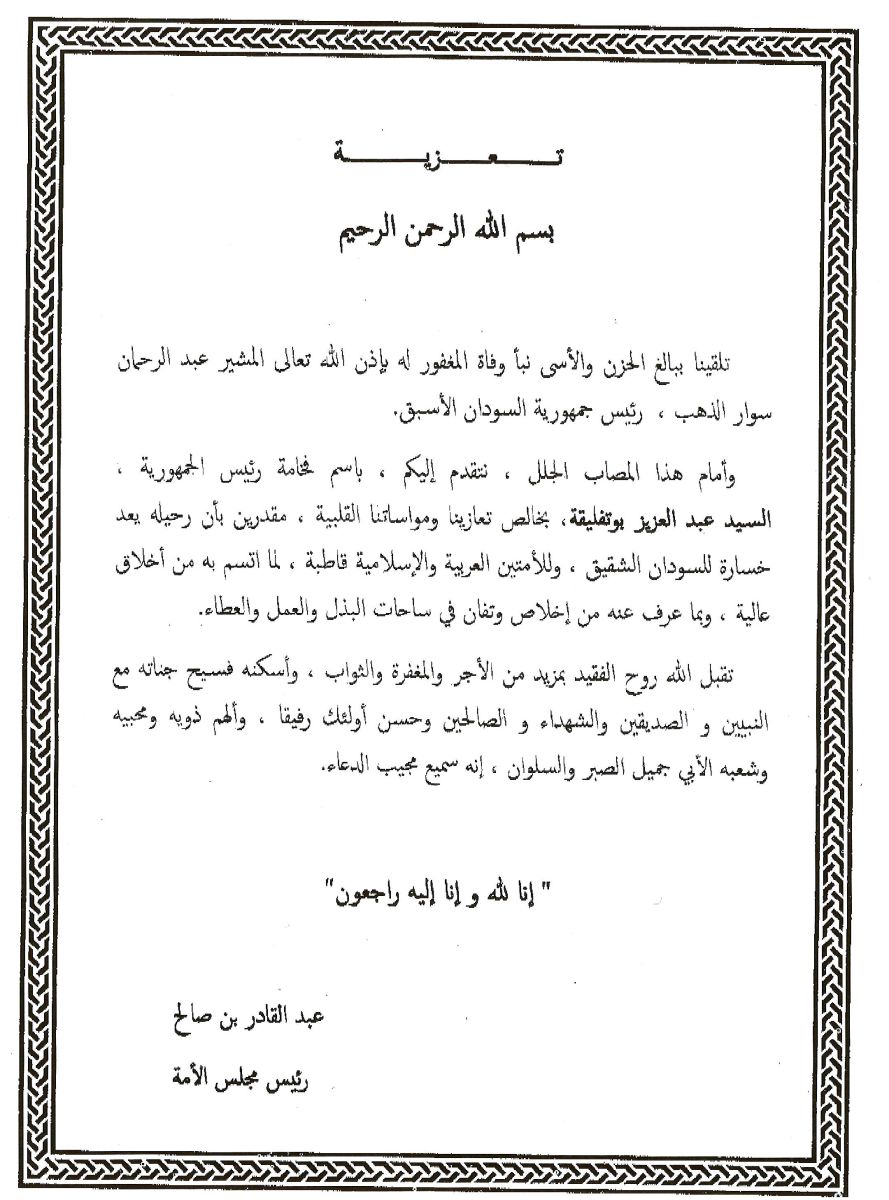 تعزية
بسم الله الرحمن الرحيم
تلقينا ببالغ الحزن والأسى نبأ وفاة المغفور له بإذن الله تعالى المشير عبد الرحمان
سوار الذهب ، رئيس جمهورية السودان الأسبق.
وأمام هذا المصاب الجلل ، نتقدم إليكم ، باسم فخامة رئيس الجمهورية ،
السيد عبد العزيز بوتفليقة، بخالص تعازينا ومواساتنا القلبية ، مقدرين بأن رحيله يعد
خسارة للسودان الشقيق ، وللأمتين العربية والإسلامية قاطبة ، لما اتسم به من أخلاق
عالية ، وبما عرف عنه من إخلاص وتفان في ساحات البذل والعمل والعطاء.
تقبل الله روح الفقيد بمزيد من الأجر والمغفرة والثواب ، وأسكنه فسيح جناته مع
النبيين و الصديقين والشهداء و الصالحين وحسن أولئك رفيقا ، وألهم ذويه ومحبيه
وشعبه الأبي جميل الصبر والسلوان ، إنه سميع مجيب الدعاء.
" إنا لله و إنا إليه راجعون"
عبد القادر بن صالح
رئيس مجلس الأمة